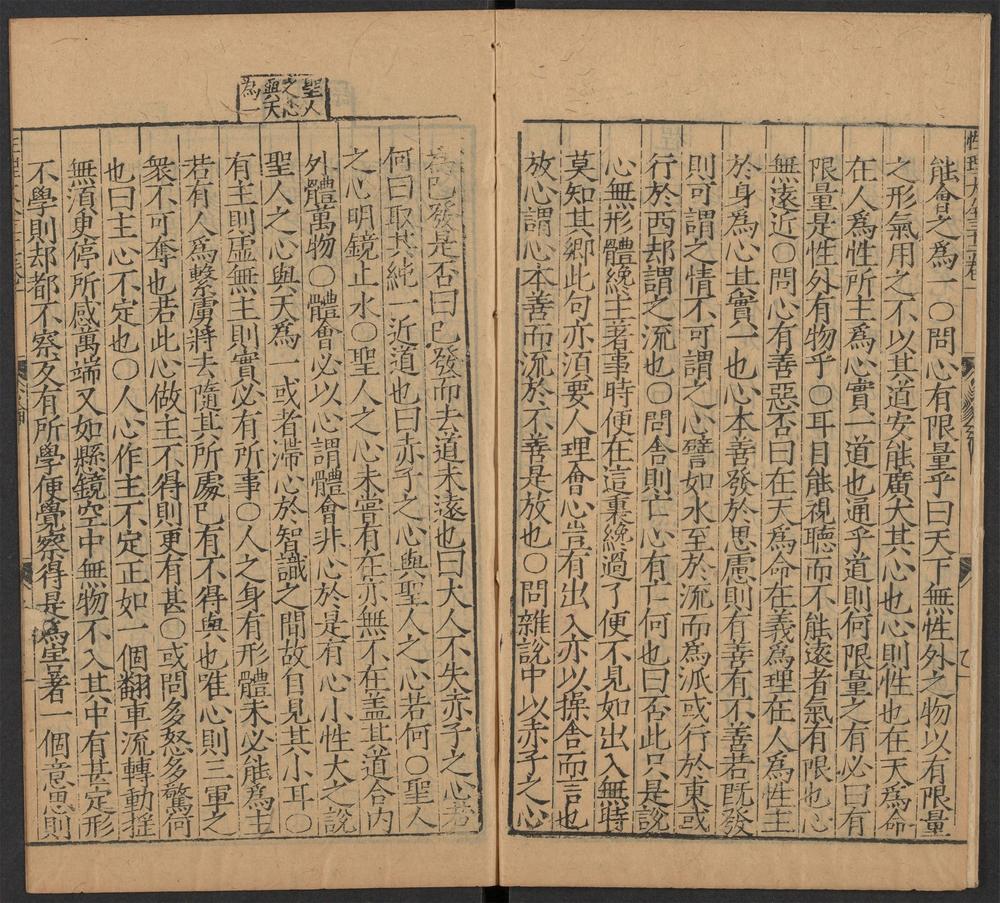 能會之爲一〇問心有限量乎曰天下無性外之物以有限量
之形氣用之不以其道安能廣大其心也心則性也在天爲命
在人爲性所主爲心實一道也通乎道則何限量之有必曰有
限量是性外有物乎〇耳目能視聽而不能遠者氣有限也心
無遠近〇問心有善惡否曰在天爲命在義爲理在人爲性主
於身爲心其實一也心本善發於思慮則有善有不善若既發
則可謂之情不可謂之心譬如水至於流而爲派或行於東或
行於西却謂之流也〇問舎則亡心有亡何也曰否此只是說
心無形體纔主著事時便在這裏纔過了便不見如出入無時
莫知其鄉此句亦須要人理會心豈有出入亦以操舎而言也
放心謂心本善而流於不善是放也〇問雜說中以赤子之心
聖人
之心
與天
爲一
為已發是否曰已發而去道未遠也曰大人不失赤子之心若
何曰取其純一近道也曰赤子之心與聖人之心若何〇聖人
之心明鏡止水〇聖人之心未嘗有在亦無不在盖其道合内
外體萬物〇體會必以心謂體會非心於是有心小性大之說
聖人之心與天爲一或者滯心於智識之間故自見其小耳〇
有主則虛無主則實必有所事〇人之身有形體未必能爲主
若有人爲繫虜將去隨其所處已有不得與也唯心則三軍之
衆不可奪也若此心做主不得則更有甚〇或問多怒多驚何
也曰主心不定也〇人心作主不定正如一個翻車流轉動揺
無須㪅停所感萬端又如懸鏡空中無物不入其中有甚定形
不學則却都不察及有所學便覺察得是爲害著一個意思則